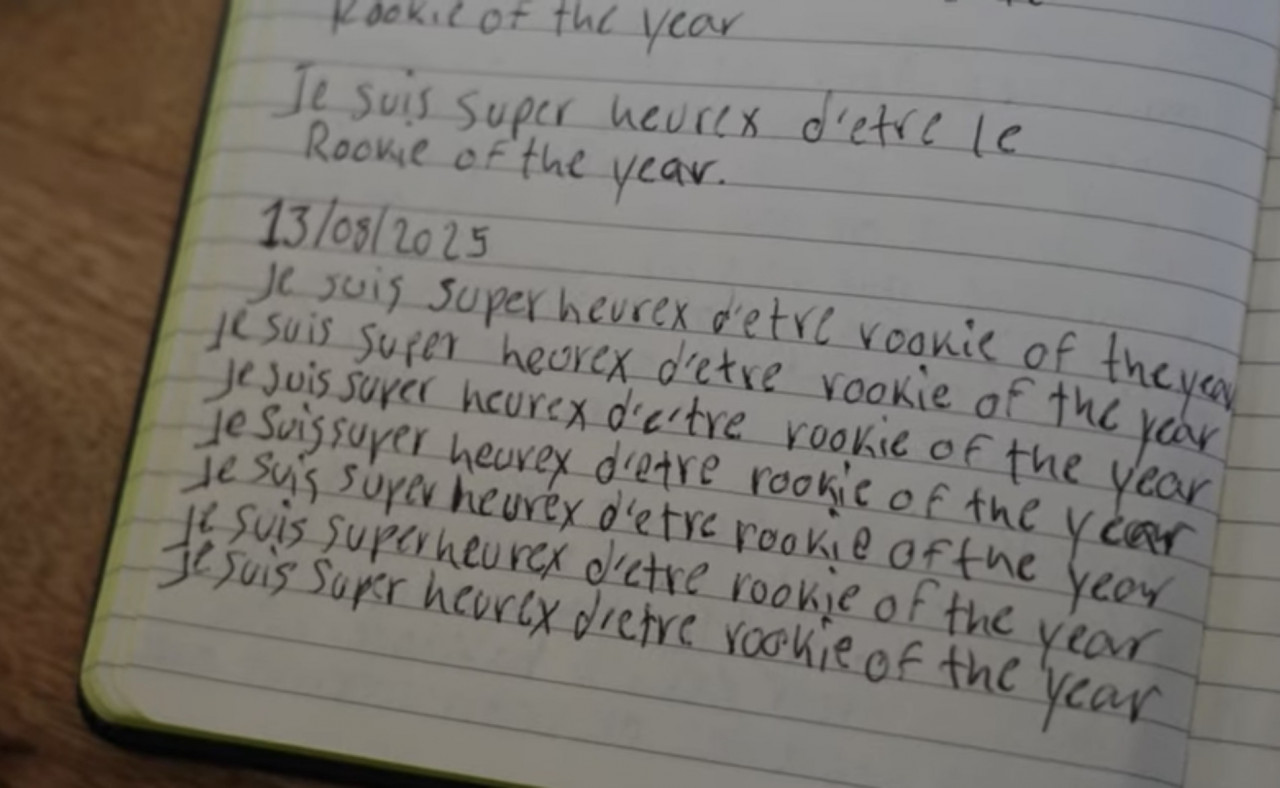 Rookie of the year
Je suis super heurex d'etre le
Rookie of the year.
13/08/2025
Je suis super heurex d'etre rookie of the year
Je suis super heurex d'etre rookie of the year
Je suis super heurex d'e'tre rookie of the year
Je suis super heurex d'etre rookie of the year
Je suis super heurex d'etre rookie of the year
Je suis super heurex d'etre rookie of the year
Je suis super heurex d'etre rookie of the year